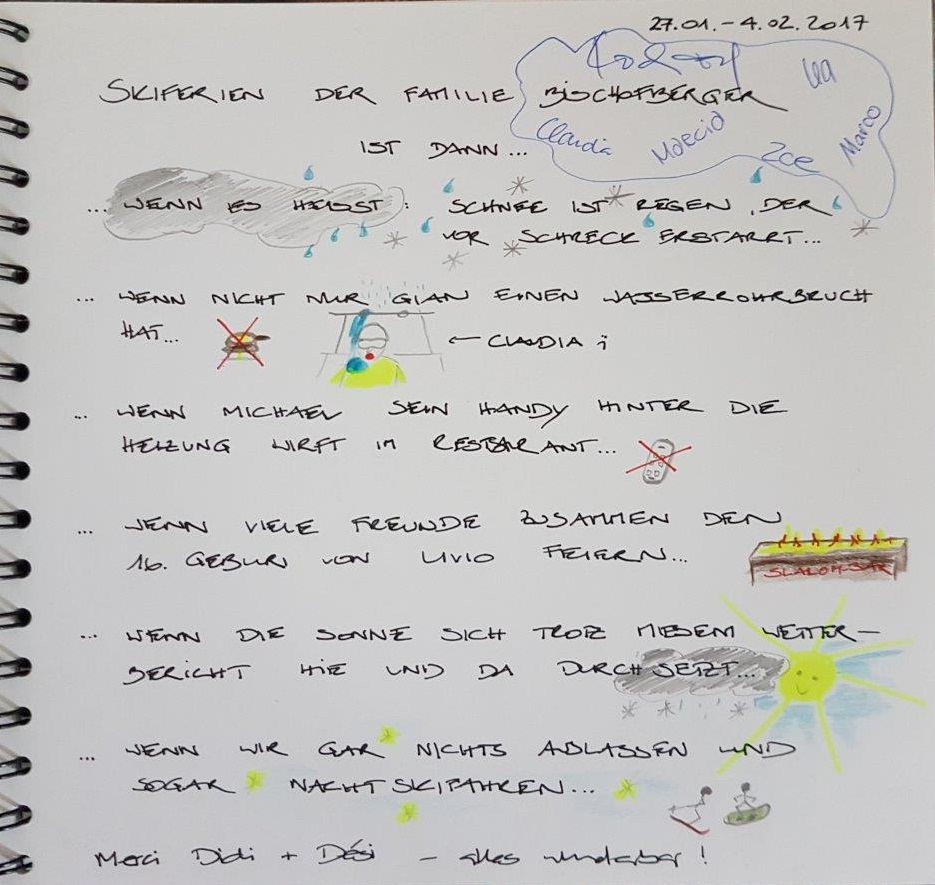 27.01. – 4.02.2017
SKIFERIEN DER FAMILIE BISCHOFBERGER
Lea
Claudia
Marco
IST DANN...
... WENN ES HEISST: SCHNEE IST REGEN, DER
VOR SCHRECK ERSTARRT...
... WENN NICHT NUR GIAN EINEN WASSERROHRBRUCH
HAT... ← CLAUDIA
... WENN MICHAEL SEIN HANDY HINTER DIE
HEIZUNG WIRFT IM RESTAURANT...
... WENN VIELE FREUNDE ZUSAMMEN DEN
16. GEBURI VON LIVIO FEIERN...
SLALOM-BAR
... WENN DIE SONNE SICH TROTZ MIESEM WETTER–
BERICHT HIE UND DA DURCHSETZT...
... WENN WIR GAR NICHTS ABLASSEN UND
SOGAR NACHTSKIFAHREN...
Merci Didi + Dési – alles wunderbar!